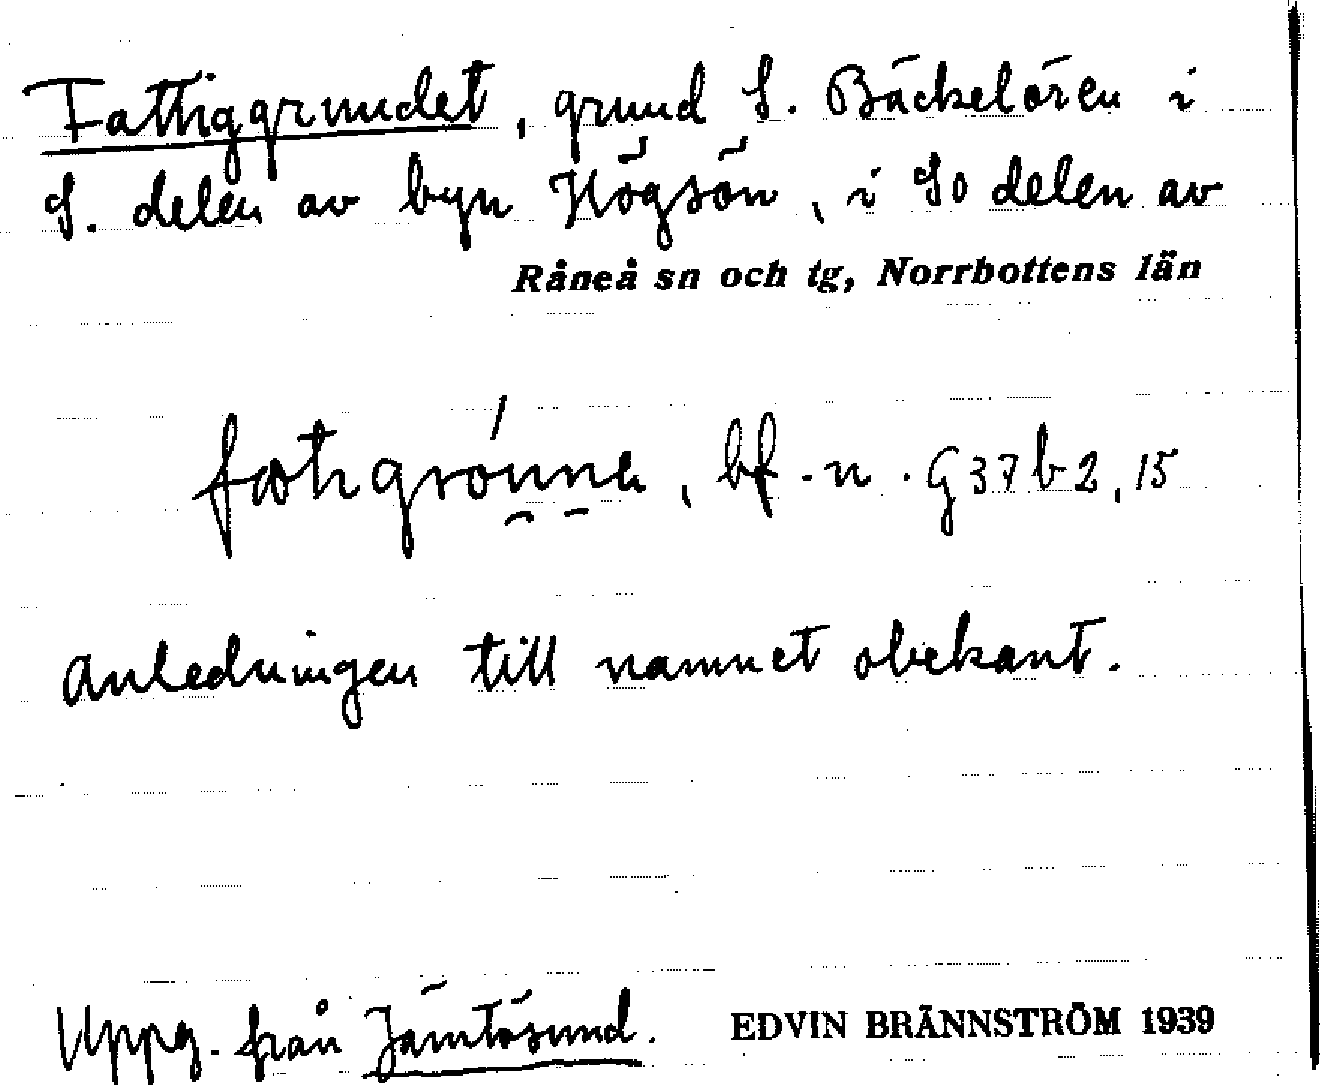 Fattiggrundet, grund S. Bäckelören i
S. delen av byn Högsön, i SO delen av
Råneå sn och tg, Norrbottens län
fatigrónne, bf. n. G 37 b 2, 15
Anledningen till namnet obekant.
Uppg. från Jämtösund. EDVIN BRÄNNSTRÖM 1939